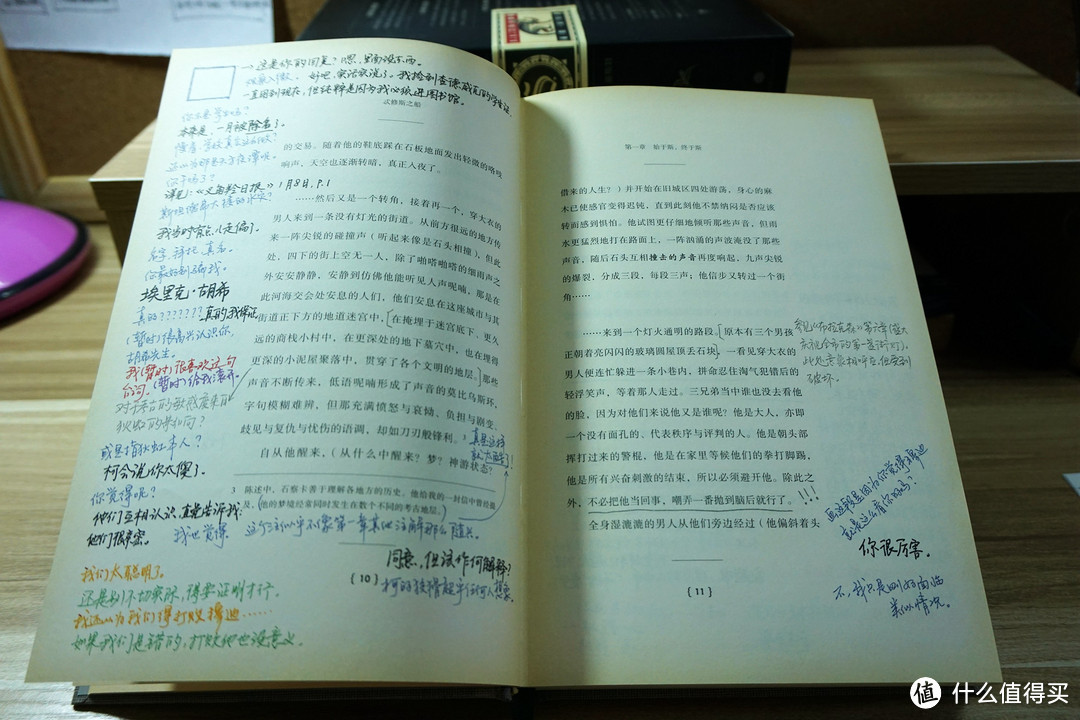 →这是你的回复？嗯，里面没东西。
好吧，实话实说了。我捡到查德威克的学生证，
一直用到现在，但纯粹是因为我必须进图书馆。
忒修斯之船
本来是，一月被除名了。
详见：《文角羚日报》1月8日，P.1
我当时有点儿走偏了。
你最好别骗我。
埃里克·胡希
真的???????真的我保证
(暂时)很高兴认识你，
胡希先生。
我(暂时)很喜欢这句
台词。
或是指狄虹本人？
柯会说你太傻了。
你觉得呢？
他们互相认识，直觉告诉我：
他们很亲密。
我也觉得
我们太聪明了。
还是别不切实际，得要证明才行。
我还以为我们得打败穆迪……
如果我们是错的，打败他也没意义。
的交易。随着他的鞋底踩在石板地面发出轻微的咯吱
响声，天空也逐渐转暗，真正入夜了。
……然后又是一个转角，接着再一个，穿大衣的
男人来到一条没有灯光的街道。从前方很远的地方传
来一阵尖锐的碰撞声（听起来像是石头相撞），但此
处，四下的街上空无一人，除了啪嗒啪嗒的细雨声之
外安安静静，安静到仿佛他能听见人声呢喃，那是在
此河海交会处安息的人们，他们安息在这座城市与其
街道正下方的地道迷宫中，在掩埋于迷宫底下、更久
远的商栈小村中，在更深处的地下墓穴中，也在埋得
更深的小泥屋聚落中，贯穿了各个文明的地层。那些
声音不断传来，低语呢喃形成了声音的莫比乌斯环，
字句模糊难辨，但那充满愤怒与哀恸、负担与剧变、
歧见与复仇与忧伤的语调，却如刀刃般锋利。3
自从他醒来，（从什么中醒来？梦？神游状态？
真是这样
就太酷了！
3 陈述中，石察卡善于理解各地方的历史。他给我的一封信中曾经提
及，他的梦境经常同时发生在数个不同的考古地层。
这个注似乎不像第一章其他注解那么随兴。
同意，但该作何解释？
柯的狡猾超乎任何人想象。
{ 10 }
第一章 始于斯，终于斯
借来的人生？）并开始在旧城区四处游荡，身心的麻
木已使感官变得迟钝，直到此刻他不禁纳闷是否应该
转而感到惧怕。他试图更仔细地倾听那些声音，但雨
水更猛烈地打在路面上，一阵汹涌的声波淹没了那些
声音，随后石头互相撞击的声音再度响起，九声尖锐
的爆裂，分成三段，每段三声；他信步又转过一个街
角……
……来到一个灯火通明的路段。原本有三个男孩
正朝着亮闪闪的玻璃圆屋顶丢石块，一看见穿大衣的
男人便连忙躲进一条小巷内，拼命忍住淘气犯错后的
轻浮笑声，等着那人走过。三兄弟当中谁也没去看他
的脸，因为对他们来说他又是谁呢？他是大人，亦即
一个没有面孔的、代表秩序与评判的人。他是朝头部
挥打过来的警棍，他是在家里等候他们的拳打脚踢，
他是所有兴奋刺激的结束，所以必须避开他。除此之
外，不必把他当回事，嘲弄一番抛到脑后就行了。
!!!
全身湿漉漉的男人从他们旁边经过（他偏斜着头
画这段是因为你觉得穆迪
就是这么看你的吗？
你很厉害。
不，我只是刚好面临
类似情况。
{ 11 }
值 什么值得买